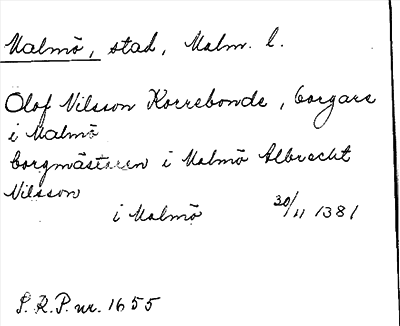 Malmö, stad, Malm. l.
Olof Nilsson Korrebonde, borgare
i Malmö
borgmästaren i Malmö Albrecht
Nilsson
i Malmö 30/11 1381
S.R.P. nr. 1655